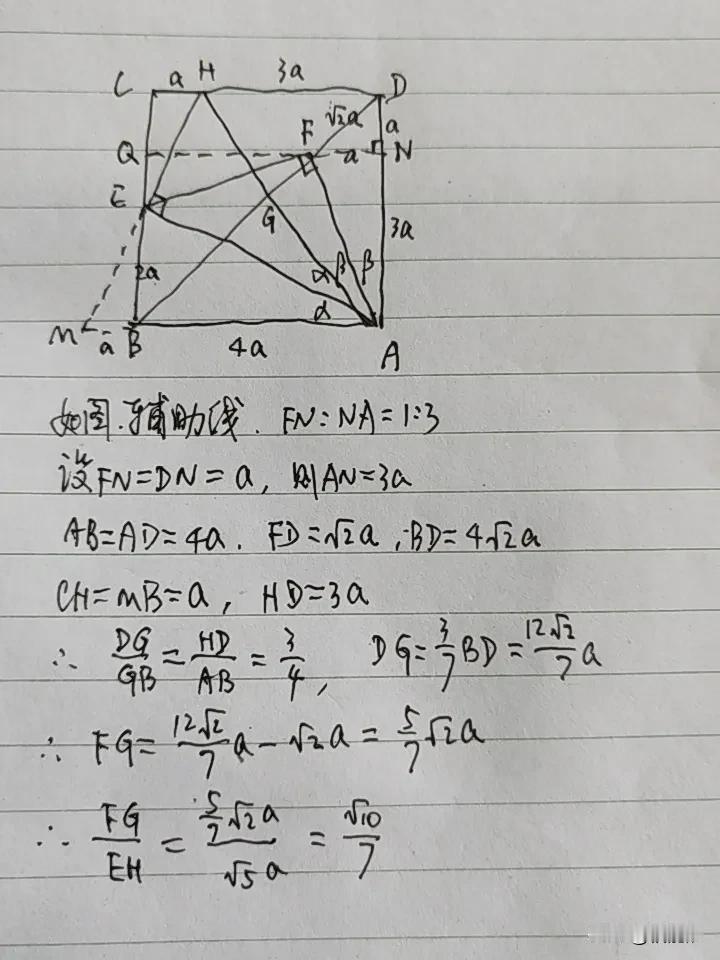 C a H 3a D
√2a a
Q F a N
E G 3a
2a α β β
α
M a B 4a A
如图.辅助线. FN:NA=1:3
设FN=DN=a, 则AN=3a
AB=AD=4a. FD=√2a, BD=4√2a
CH=MB=a, HD=3a
∴ DG/GB=HD/AB=3/4, DG=3/7BD=12√2/7a
∴ FG=12√2/7a-√2a=5/7√2a
∴ FG/EH=5/7√2a/√5a=√10/7